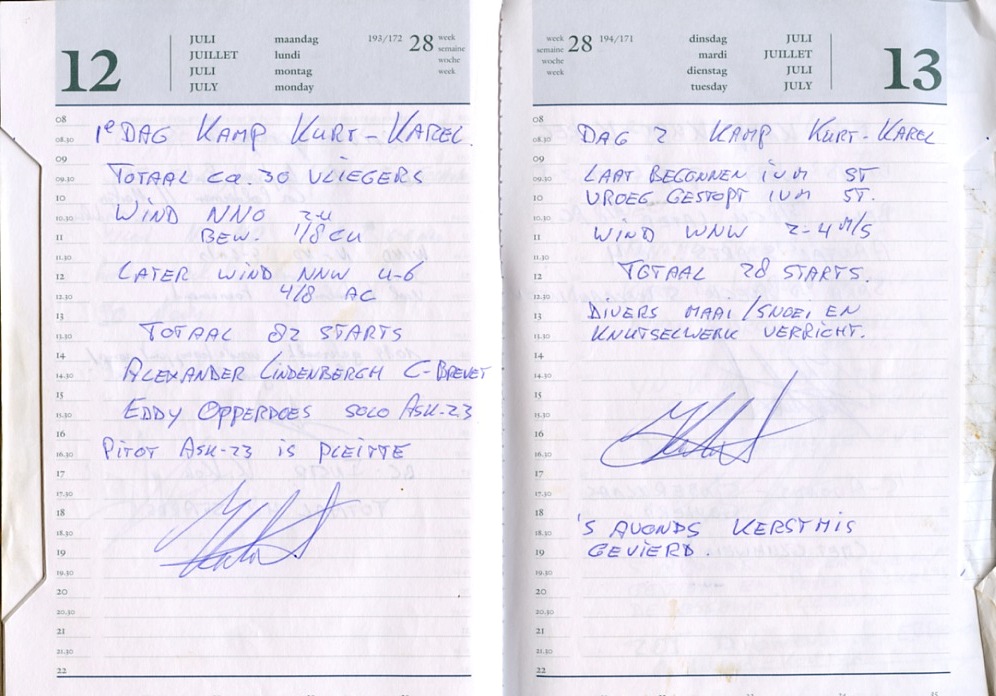 12
JULI maandag 193/172 28 week
JUILLET lundi semaine
JULI montag woche
JULY monday week
08
08.30 1e DAG KAMP KURT-KAREL
09
09.30 TOTAAL ca. 30 VLIEGERS
10
10.30 WIND NNO 2-4
11 BEW. 1/8 CU
11.30
12 LATER WIND NNW 4-6
12.30 4/8 AC
13
13.30 TOTAAL 82 STARTS
14
14.30 ALEXANDER LINDENBERGH C-BREVET
15
15.30 EDDY OPPERDOES SOLO ASK-23
16
16.30 PITOT ASK-23 IS PLEITTE
17
17.30
18
18.30
19
19.30
20
20.30
21
21.30
22
week 28 194/171 dinsdag JULI
semaine mardi JUILLET
woche dienstag JULI
week tuesday JULY
13
08
08.30 DAG 2 KAMP KURT-KAREL
09
09.30 LAAT BEGONNEN IVM ST
10 VROEG GESTOPT IVM ST.
10.30
11 WIND WNW 2-4 M/S
11.30
12 TOTAAL 28 STARTS.
12.30
13 DIVERS MAAI/SNOEI EN
13.30 KNUTSELWERK VERRICHT.
14
14.30
15
15.30
16
16.30
17
17.30
18
18.30 'S AVONDS KERSTMIS
19 GEVIERD.
19.30
20
20.30
21
21.30
22